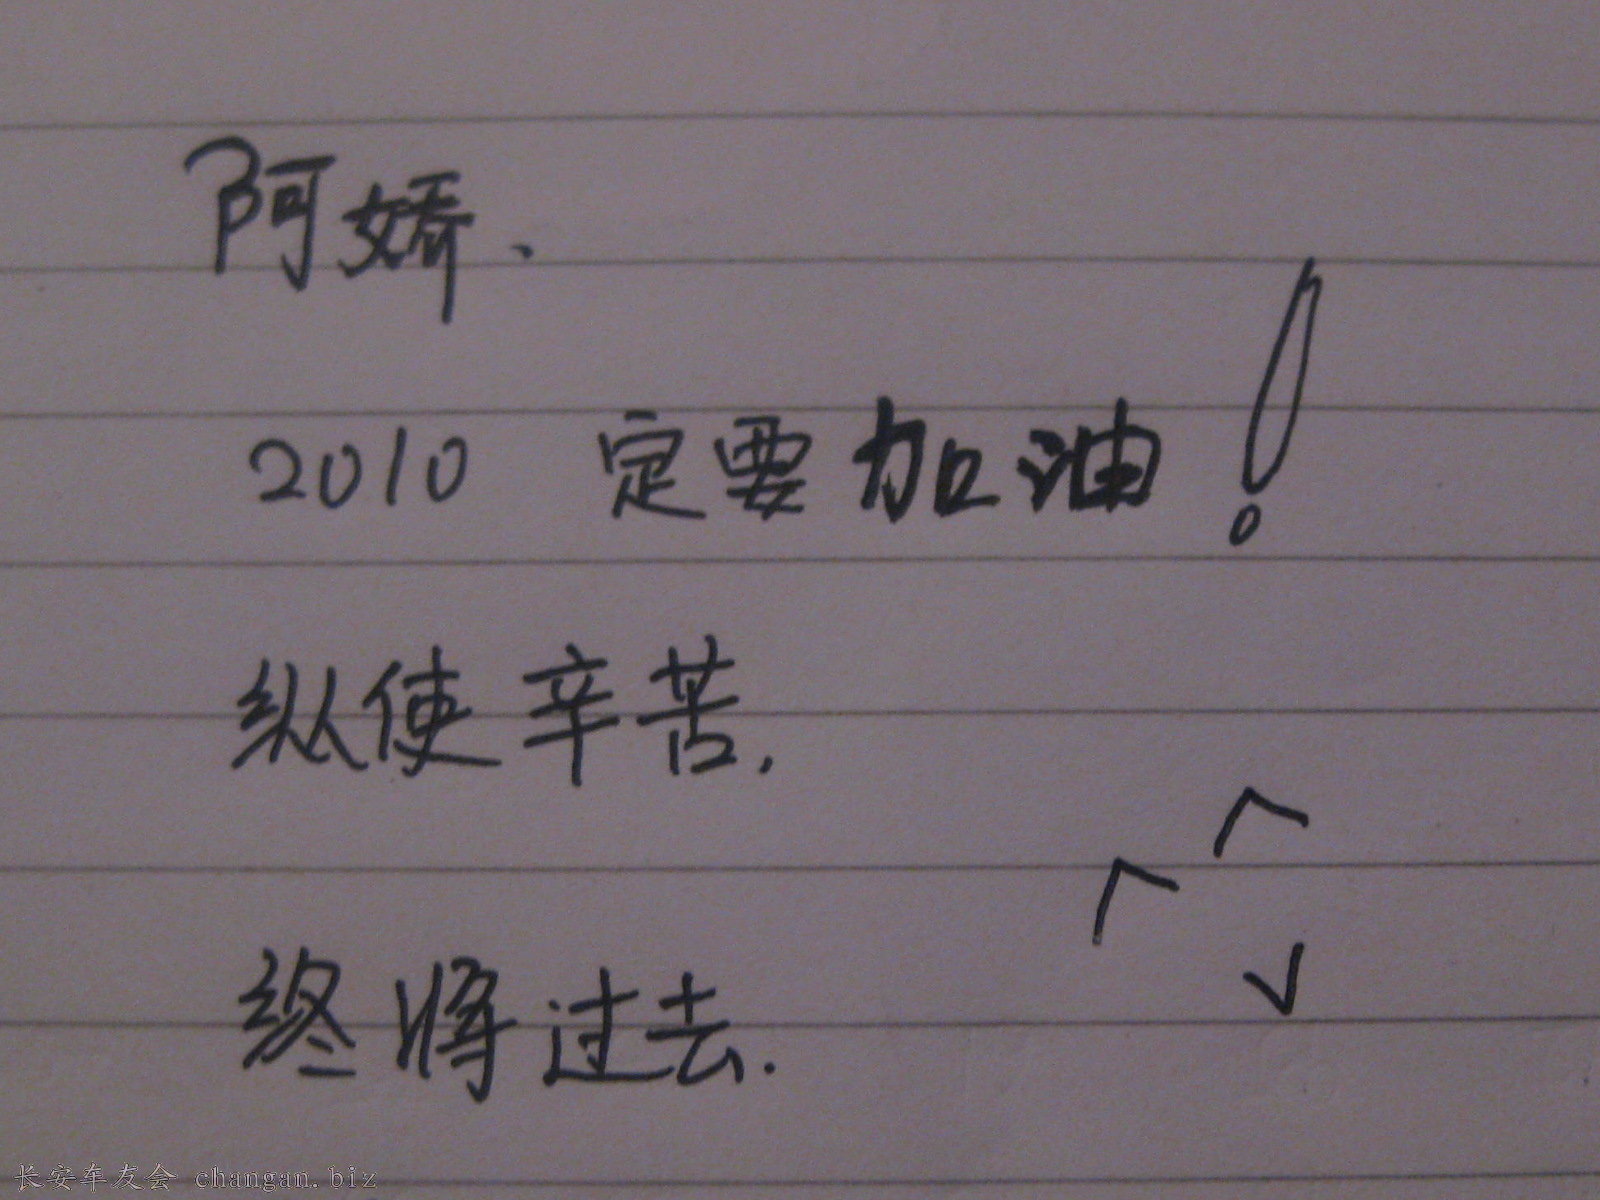 阿娇、
2010 定要加油!
纵使辛苦,
终将过去.
长安车友会 changan.biz